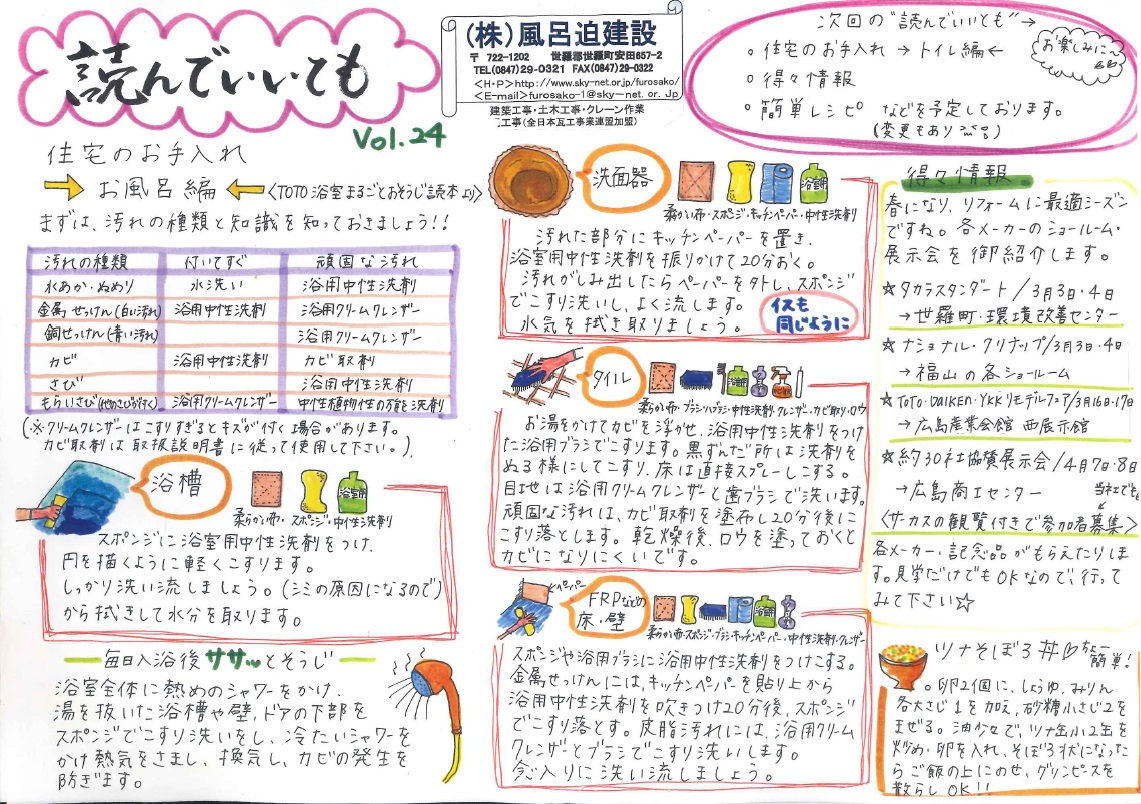 読んでいいとも
Vol.24
(株)風呂迫建設
〒 722-1202 世羅郡世羅町安田657-2
TEL(0847)29-0321 FAX(0847)29-0322
<H・P>http://www.sky-net.or.jp/furosako/
<E-mail>furosako-1@sky-net.or.Jp
建築工事・土木工事・クレーン作業
工事(全日本瓦工事業連盟加盟)
次回の"読んでいいとも"→
・住宅のお手入れ → トイレ編 ←
・得々情報
・簡単レシピ などを予定しております。
(変更もあり
お楽しみに〜
住宅のお手入れ
→ お風呂編 ← <TOTO 浴室まるごとおそうじ読本より>
まずは、汚れの種類と知識を知っておきましょう!!
汚れの種類 付いてすぐ 頑固な汚れ
水あか・ぬめり 水洗い 浴用中性洗剤
金属せっけん(白い汚れ) 浴用中性洗剤 浴用クリームクレンザー
銅せっけん(青い汚れ) 浴用クリームクレンザー
カビ 浴用中性洗剤 カビ取剤
さび 浴用中性洗剤
もらいさび(他のさびが付く) 浴用クリームクレンザー 中性植物性の万能を洗剤
(※クリームクレンザーはこすりすぎるとキズが付く場合があります。
カビ取剤は取扱説明書に従って使用して下さい。)
浴槽
浴室用
柔らかい布・スポンジ・中性洗剤
スポンジに浴室用中性洗剤をつけ、
円を描くように軽くこすります。
しっかり洗い流しましょう。(シミの原因になるので)
から拭きして水分を取ります。
毎日入浴後ササッとそうじ
浴室全体に熱めのシャワーをかけ、
湯を抜いた浴槽や壁、ドアの下部を
スポンジでこすり洗いをし、冷たいシャワーを
かけ熱気をさまし、換気し、カビの発生を
防ぎます。
洗面器
浴室用
柔かい布・スポンジ・キッチンペーパー・中性洗剤
汚れた部分にキッチンペーパーを置き、
浴室用中性洗剤を振りかけて20分おく。
汚れがしみ出したらペーパーを外し、スポンジ
でこすり洗いし、よく流します。
水気を拭き取りましょう。
イスも
同じように
タイル
柔らかい布・ブラシ・ハブラシ・中性洗剤・クレンザー・カビ取り・ロウ
お湯をかけてカビを浮かせ、浴用中性洗剤をつけ
た浴用ブラシでこすります。黒ずんだ所は洗剤を
ぬる様にしてこすり、床は直接スプレーしこする。
目地は浴用クリームクレンザーと歯ブラシで洗います。
頑固な汚れは、カビ取剤を塗布し20分後に
こすり落とします。乾燥後、ロウを塗っておくと
カビになりにくいです。
ペーパー
FRPなどの
床・壁
浴室用
柔らかい布・スポンジ・ブラシ・キッチンペーパー・中性洗剤・クレンザー
スポンジや浴用ブラシに浴用中性洗剤をつけこする。
金属せっけんには、キッチンペーパーを貼り上から
浴用中性洗剤を吹きつけ20分後、スポンジ
でこすり落とす。皮脂汚れには、浴用クリーム
クレンザーとブラシでこすり洗いします。
念入りに洗い流しましょう。
得々情報
春になり、リフォームに最適シーズン
ですね。各メーカーのショールーム・
展示会を御紹介します。
☆タカラスタンダート/3月3日・4日
→世羅町・環境改善センター
☆ナショナル・クリナップ/3月3日・4日
→福山の各ショールーム
☆TOTO・DAIKEN・YKKリモデルフェア/3月16日・17日
→広島産業会館 西展示館
☆約30社協賛展示会/4月7日・8日
→広島商工センター 当社でも
<サーカスの観覧付きで参加者募集>
各メーカー、記念品がもらえたりしま
す。見学だけでもOKなので、行って
みて下さい☆
ツナそぼろ丼♡ちょー
簡単!
。卵2個に、しょうゆ、みりん
各大さじ1を加え、砂糖小さじ2を
まぜる。油少なで、ツナ缶小2缶を
炒め、卵を入れ、そぼろ状になった
らご飯の上にのせ、グリンピースを
散らしOK!!